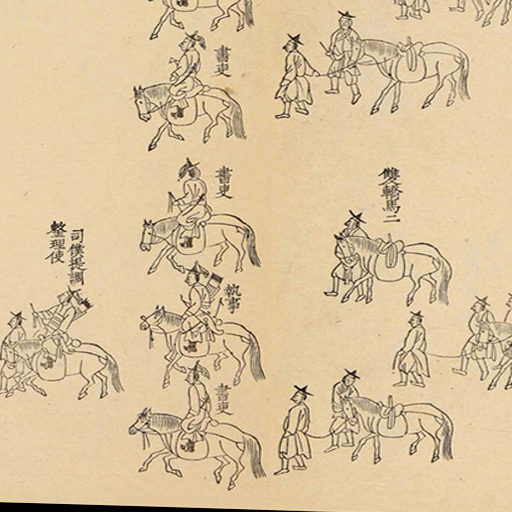 雙轎馬二
書吏
書吏
執事
書吏
司僕提調
整理使